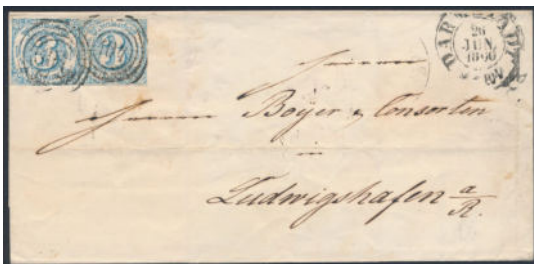 DARMSTADT
26
JUN.
1866
Herren
Herren Boyer & Consorten
in
Ludwigshafen a/R.